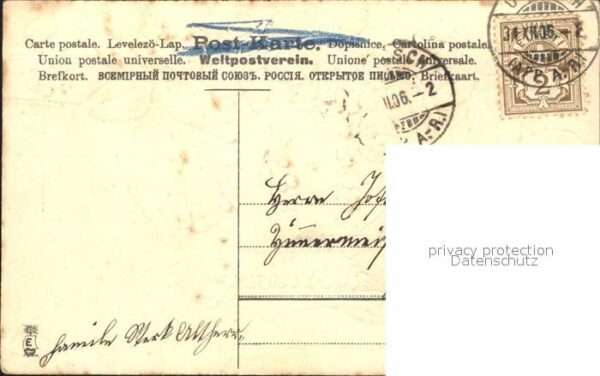 Carte postale. Levelező-Lap. Post-Karte. Dopisnice. Cartolina postale.
Union postale universelle. Weltpostverein. Unione postale universale.
Brefkort. ВСЕМІРНЫЙ ПОЧТОВЫЙ СОЮЗЪ. РОССІЯ. ОТКРЫТОЕ ПИСЬМО. Briefkaart.
31.XII.06. - 7
(APP. A.-R.)
2
II.06. - 2
A.-R.)
Herrn
Zimmermeis
privacy protection
Datenschutz
E
Familie Sterk Altherr.